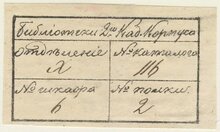 Библiотеки 2го Кад. Корпуса
отдѣленiе № каталога
X 116
№ шкафа № полки
6 2